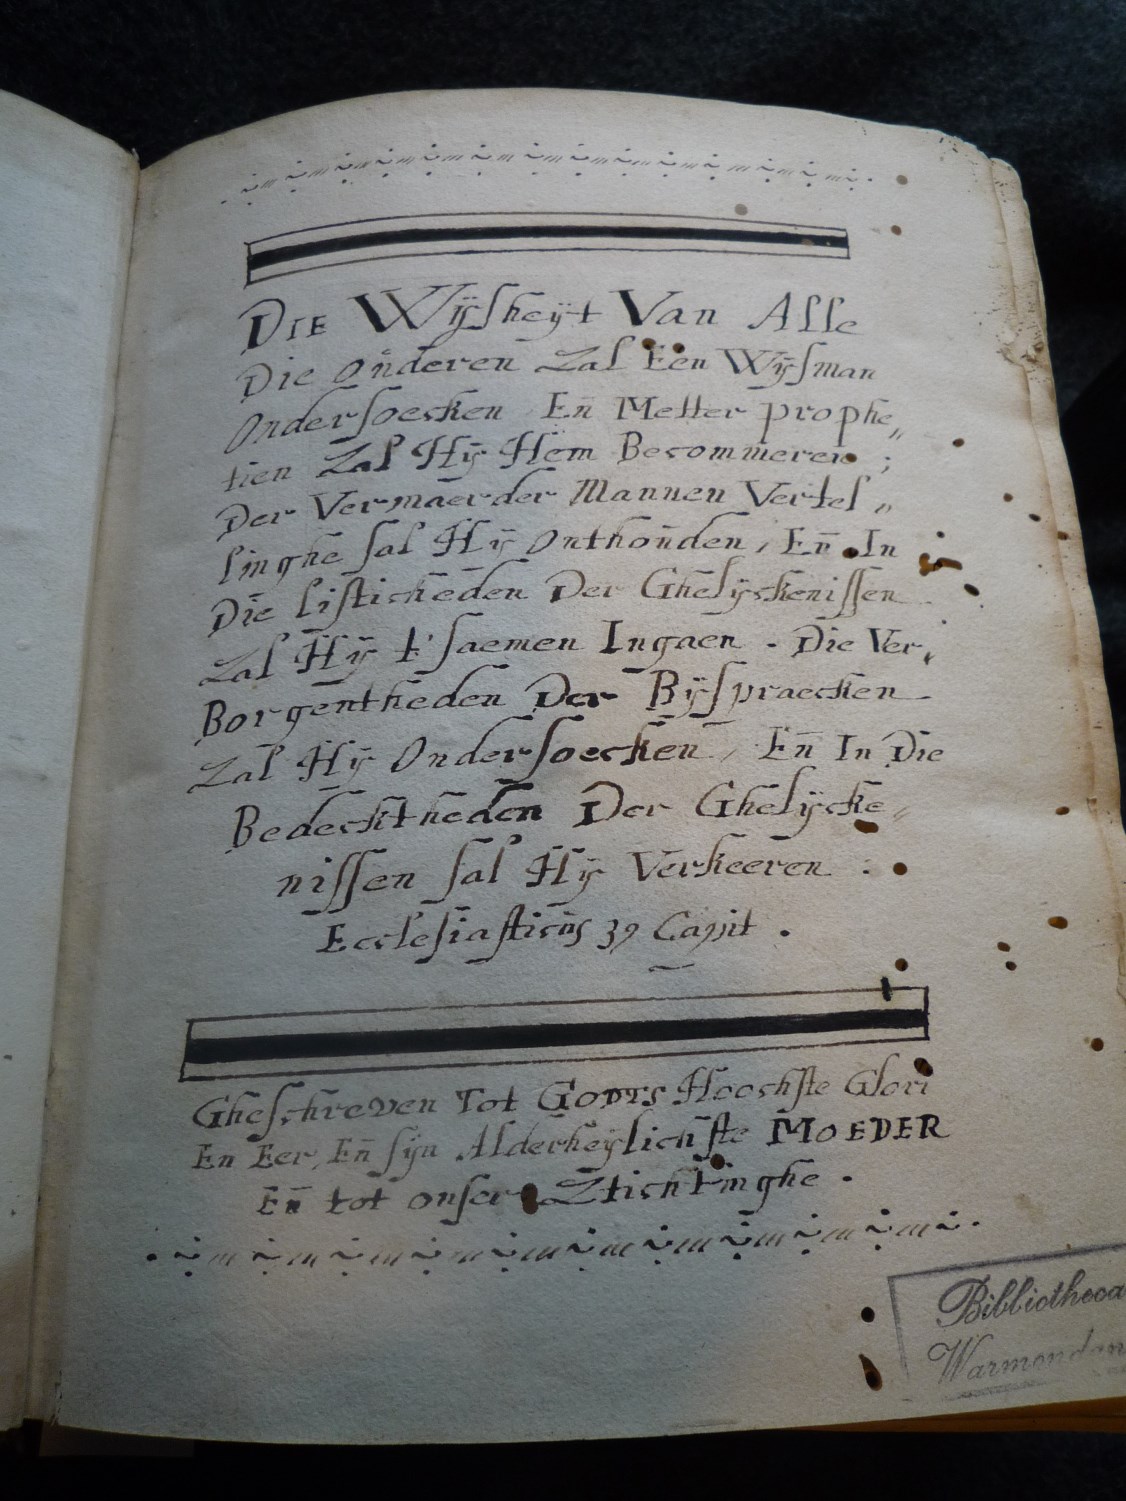 DIE Wÿsheÿt Van Alle
Die oŭderen Zal Een Wÿsman
Ondersoecken En̄ Metter prophe„
tien Zal Hÿ Hem Becommeren ;
Der Vermaerder Mannen Vertel„
linghe sal Hÿ onthoŭden, En̄ In
Die listicheden Der Ghelÿckenissen
Zal Hÿ t'saemen Ingaen. Die Ver„
Borgentheden Der Bÿspraecken
Zal Hÿ Ondersoecken, En̄ In Die
Bedecktheden Der Ghelÿcke„
nissen sal Hÿ Verkeeren :
Ecclesiasticŭs 39 Capit.
Gheschreven Tot GODTS Hoochste Glori
En Eer, En̄ sÿn Alderheÿlichste MOEDER
En̄ tot onser Stichtinghe.
Bibliotheca